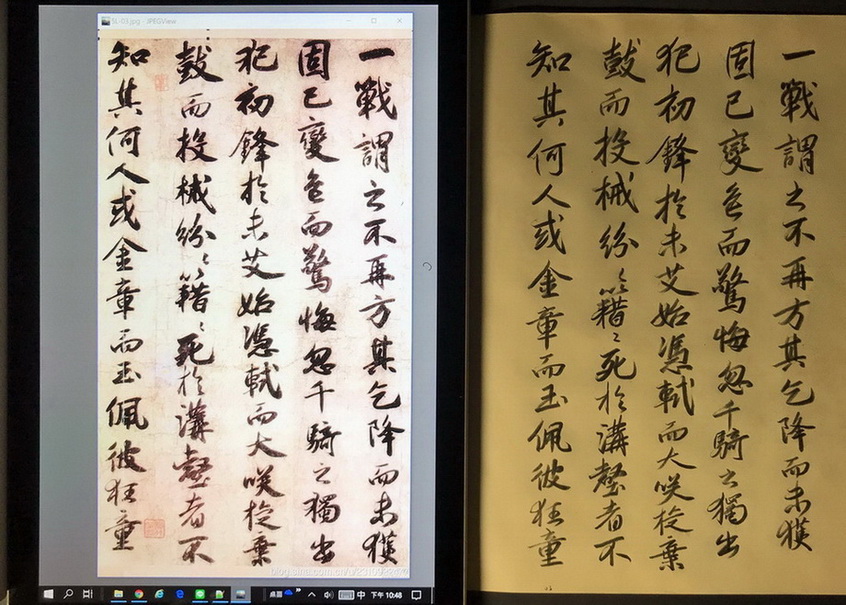 SL-03.jpg - JPEGView
一戰謂之不再方其乞降而未獲
固已變色而驚悔忽千騎之獨出
犯初鋒於未艾始憑軾而大咲旋棄
鼓而投械紛〻籍〻死於溝壑者不
知其何人或金章而玉佩彼狂童
桌面 中 下午 10:48
一戰謂之不再方其乞降而未獲
固已變色而驚悔忽千騎之獨出
犯初鋒於未艾始憑軾而大咲旋棄
鼓而投械紛〻籍〻死於溝壑者不
知其何人或金章而玉佩彼狂童